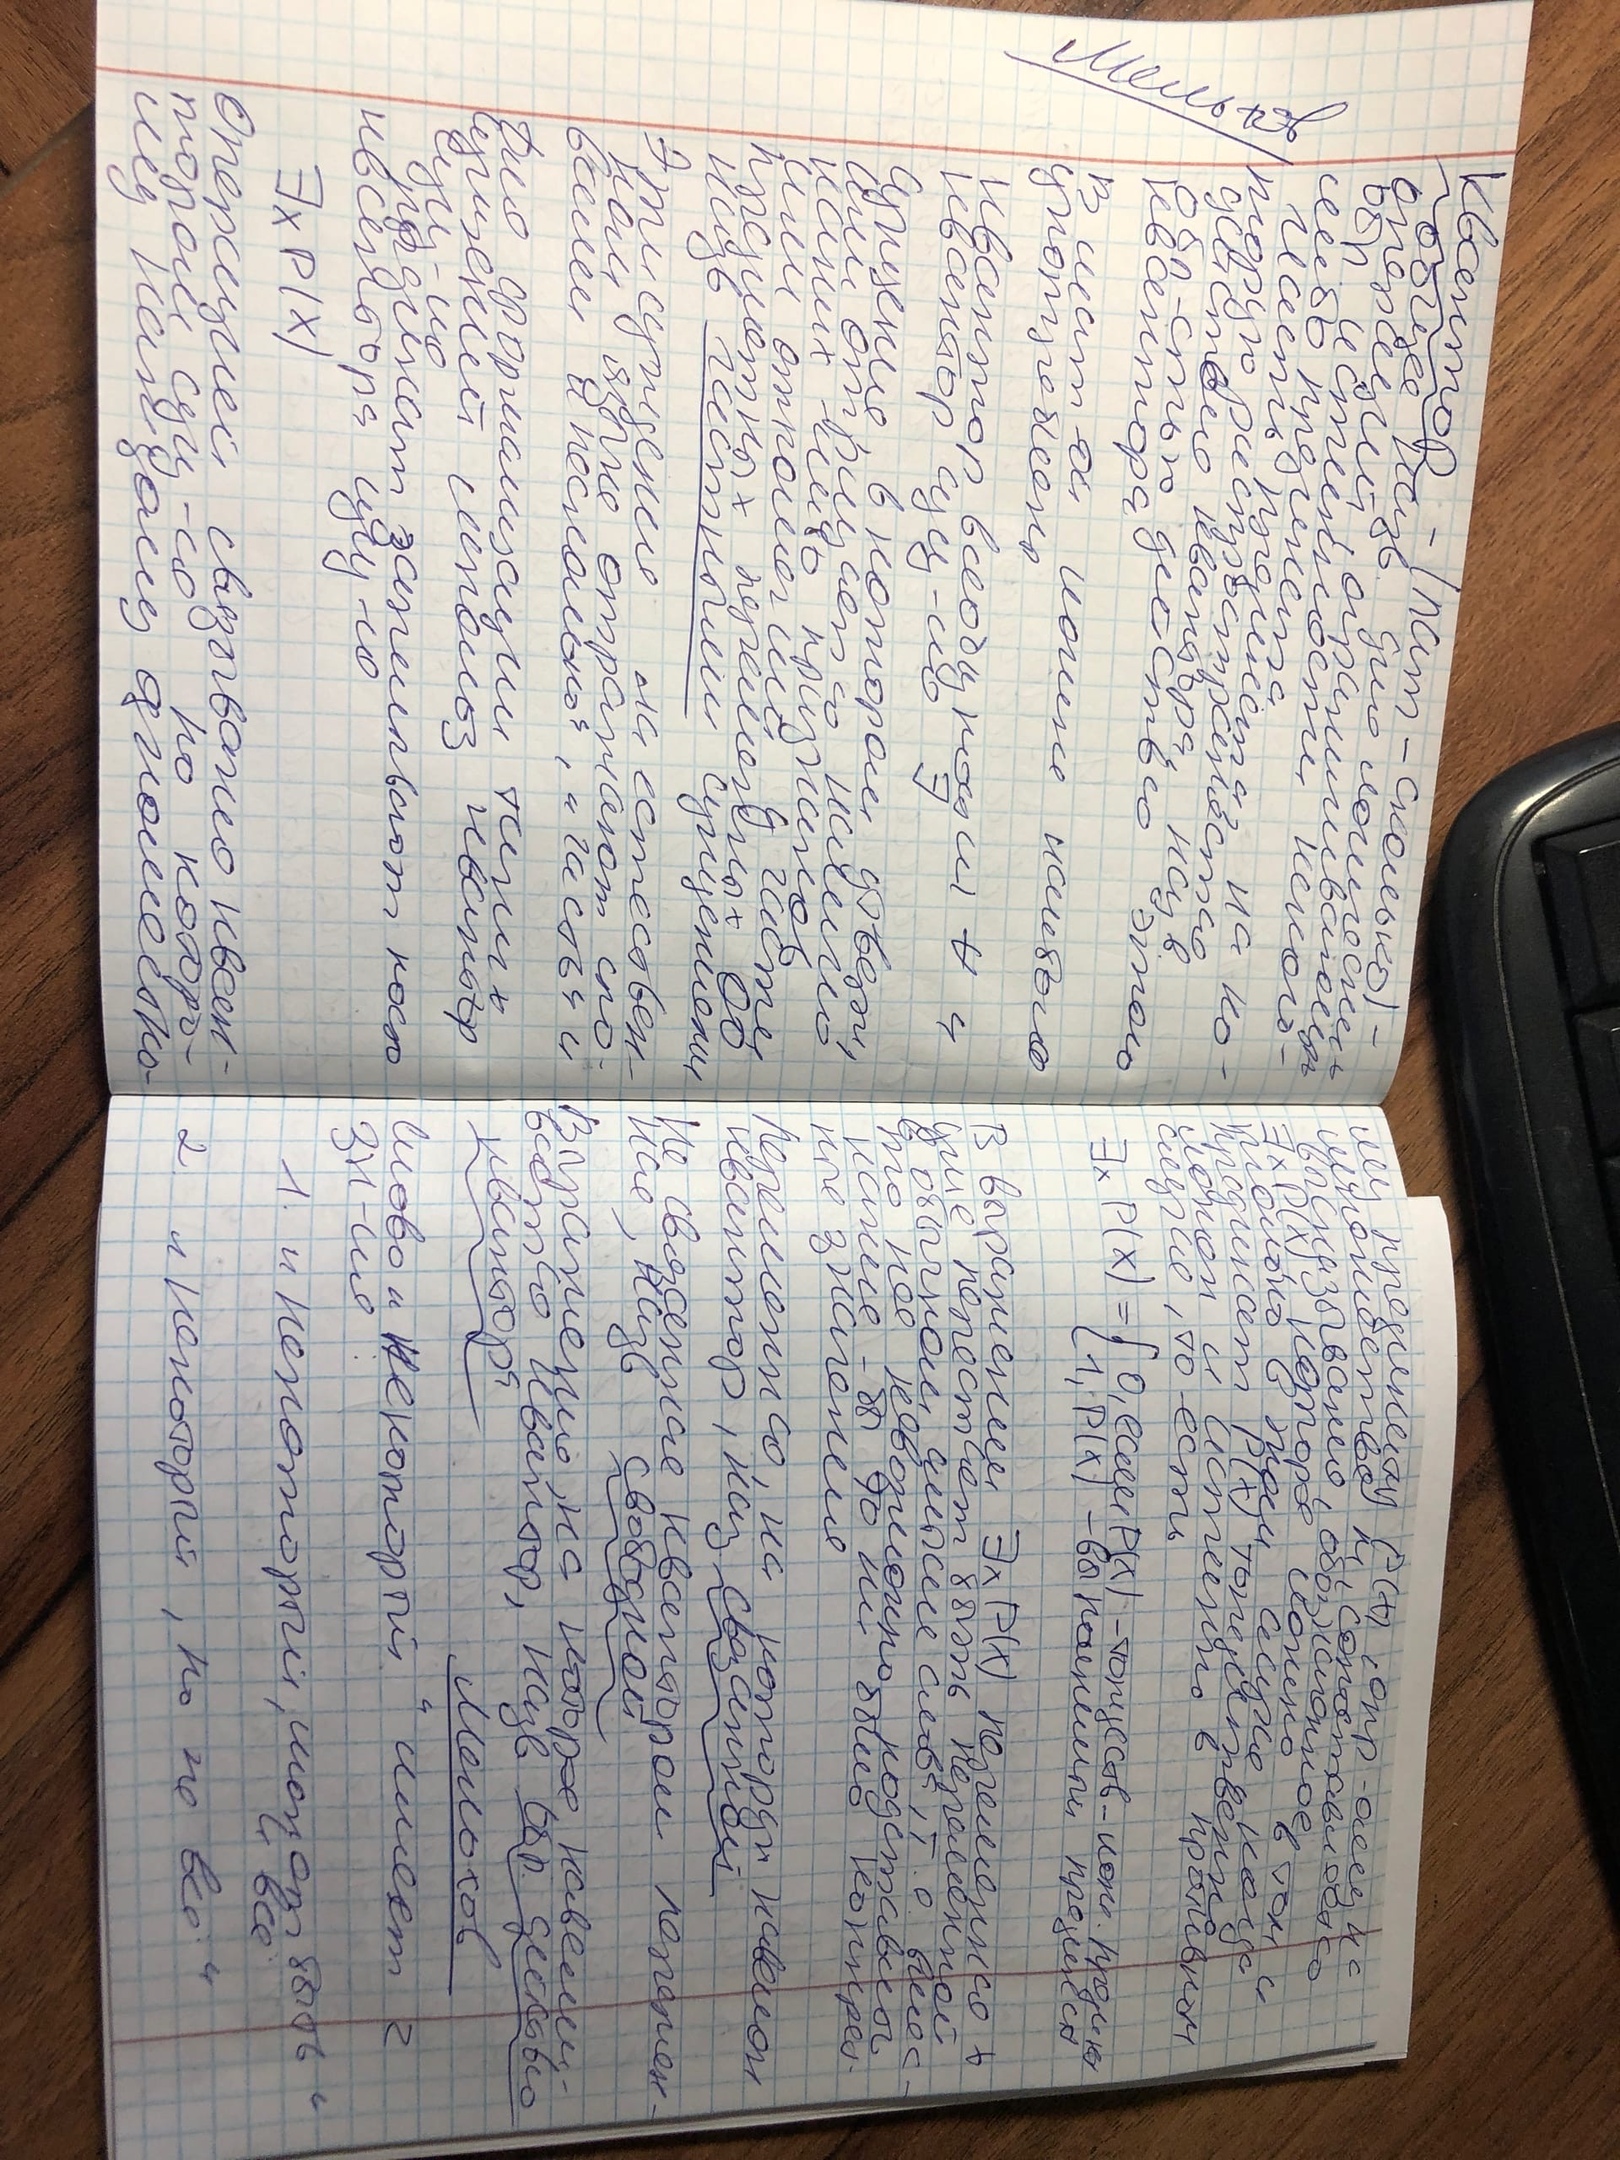 Квантор - (лат - сколько) -
общее назв. для логических
операций, ограничивающих
обл. истинности какого-
либо предиката.
Часть предиката, на ко-
торую распространяется
действие квантора, назв.
обл-стью действия этого
квантора
Мельхов
В мат-ой логике наиболее
употреблены
квантор всеобщности ∀ и
квантор сущ-ия ∃
Суждения, в котором утверж,
или отрицается наличие
каких-либо признаков
или отношений у части
предметных переменных ОО
назв частными суждениями
Эти суждения на естествен-
ном языке отражают сло-
вами "несколько", "часть" и
Для формализации таких
суждений использ квантор
сущ-ия
предикат записывают после
квантора сущ-ия
∃x P(X)
Операцией связывания кван-
тором сущ-ия по которо-
му каждому одноместно-
му предикату P(x), опр-ому на
множестве M, сопоставляется
высказывание, обозначенное
∃x P(X), которое ложно в том и
только в этом случае, когда
предикат P(X) тождественно
ложен и истинно в противном
случае, то есть
∃x P(X) = { 0, если P(X) - тождеств-лож. предикат
1, P(X) - выполнимый предикат
В выражении ∃x P(X) переменная x
уже перестает быть переменной
в обычном смысле слова, т.е. вмес-
то нее невозможно подставить
какие-бы то ни было конкрет-
ные значения
Переменная, на которую навешен
квантор, наз связанной
Не связанная квантором перемен-
ная, назв свободной
Выражение, на которое навеши-
вается квантор, назв обл. действия
квантора
Мелохов
Слово "Некоторый" имеет 2
зн-ия :
1. "некоторый, может быть
и все"
2. "некоторый, но не все"